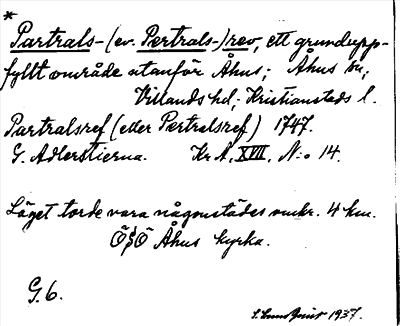 *
Partrals- (ev. Pertrals-) rev, ett grundupp-
fyllt område utanför Åhus; Åhus sn,
Villands hd, Kristianstads l.
Partralsref (eller Pertralsref) 1747.
G. Adlerstierna. Kr A, XVII, N:o 14.
Läget torde vara någonstädes omkr. 4 km.
ÖSÖ Åhus kyrka.
G. 6.
1937.